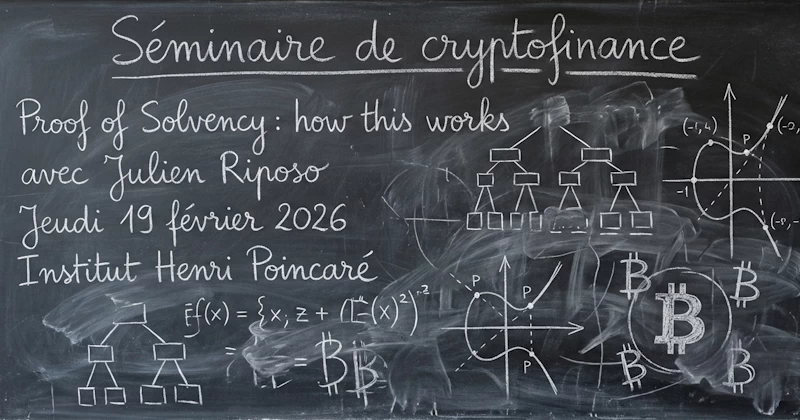 Séminaire de cryptofinance
Proof of Solvency: how this works
avec Julien Riposo
Jeudi 19 février 2026
Institut Henri Poincaré
(-1,4)
P
-1
P
P
P